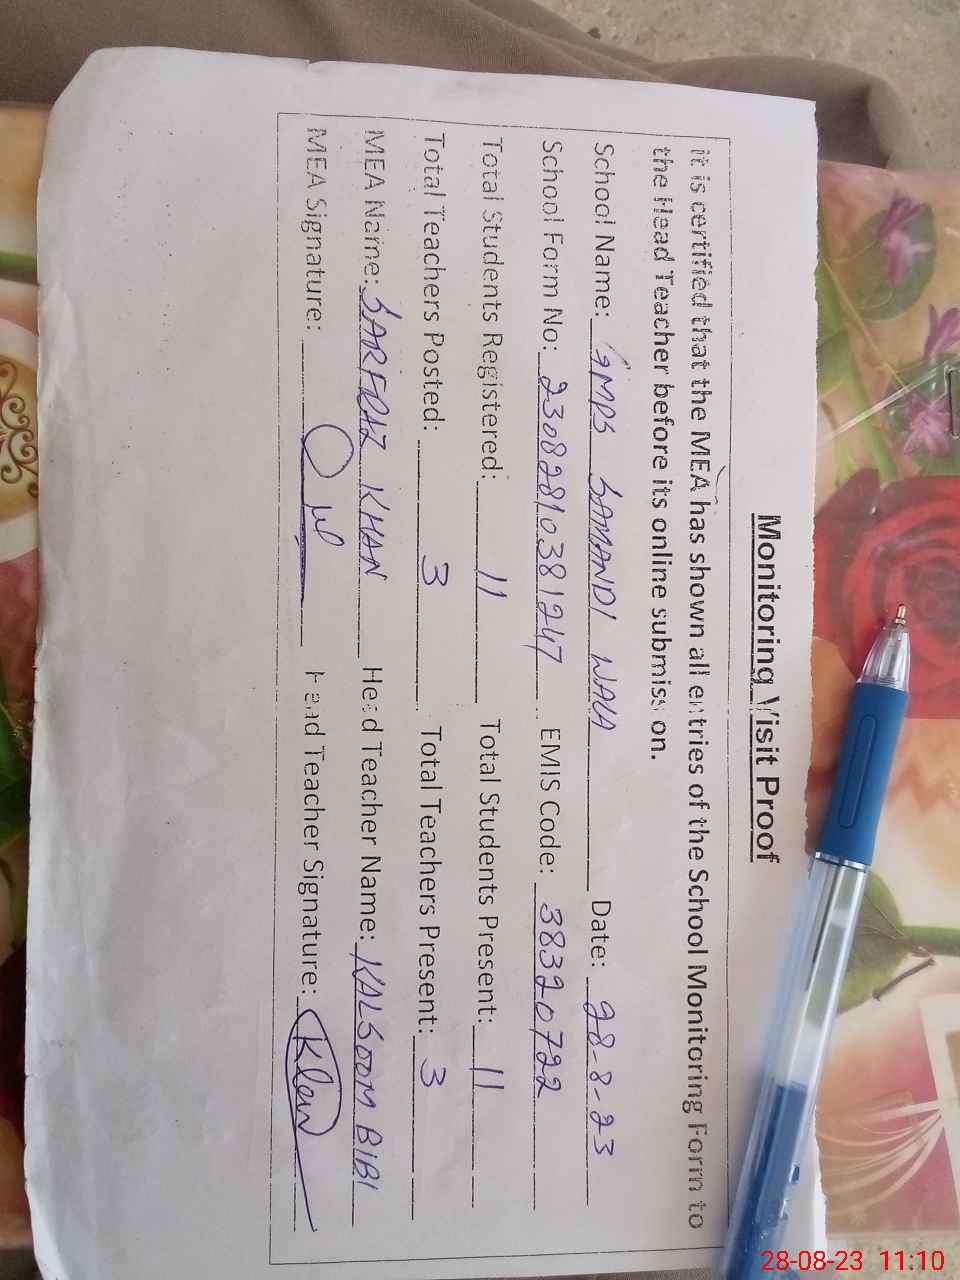 Monitoring Visit Proof
it is certified that the MEA has shown all entries of the School Monitoring Form to
the Head Teacher before its online submission.
School Name: GMPS SAMANDI WALA Date: 28-8-23
School Form No: 23082810381247 EMIS Code: 38320722
Total Students Registered: 11 Total Students Present: 11
Total Teachers Posted: 3 Total Teachers Present: 3
MEA Name: SARFRAZ KHAN Head Teacher Name: KALSOOM BIBI
MEA Signature: Head Teacher Signature:
28-08-23 11:10